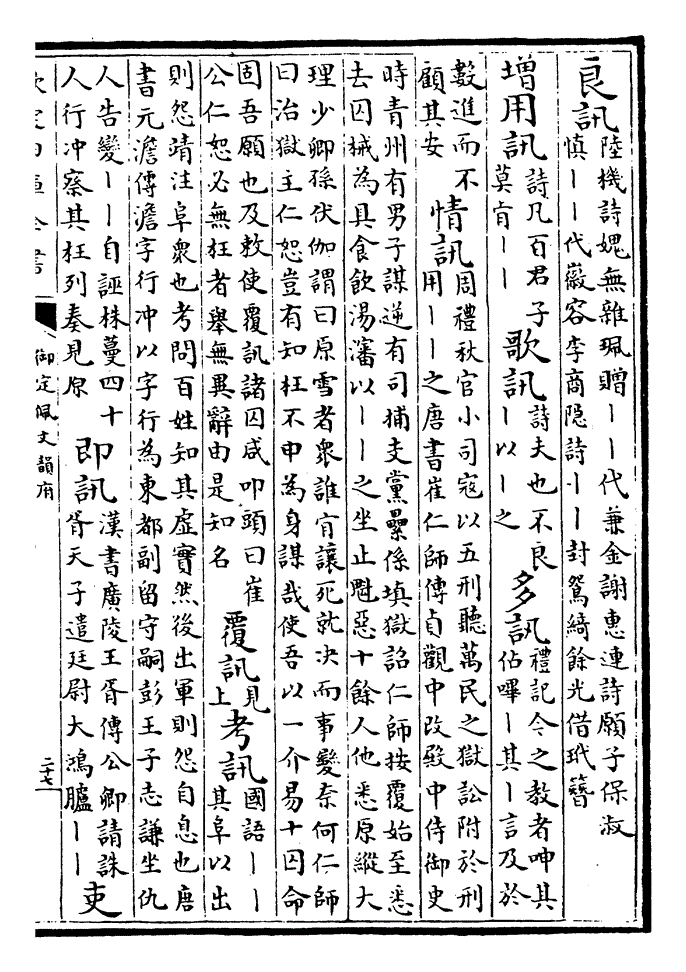 良訊 陸機詩媿無雜珮贈丨丨代兼金謝惠連詩願子保淑
慎丨丨代徽容李商隐詩丨丨封鴛綺餘光借玳簪
增用訊 詩凡百君子
莫肯丨丨
歌訊 詩夫也不良
丨以丨之
多訊 禮記今之教者呻其
佔嗶丨其丨言及於
數進而不
顧其安
情訊 周禮秋官小司寇以五刑聽萬民之獄訟附於刑
用丨丨之唐書崔仁師傳貞觀中改殿中侍御史
時青州有男子謀逆有司捕支黨纍係填獄詔仁師按覆始至悉
去囚械為具食飲湯瀋以丨丨之坐止魁惡十餘人他悉原縱大
理少卿孫伏伽謂曰原雪者衆誰肯讓死就决而事變奈何仁師
曰治獄主仁恕豈有知枉不申為身謀哉使吾以一介易十囚命
固吾願也及敕使覆訊諸囚咸叩頭曰崔
公仁恕必無枉者舉無異辭由是知名
覆訊 見
上
考訊 國語丨丨
其阜以出
則怨靖注阜衆也考問百姓知其虚實然後出軍則怨自息也唐
書元澹傳澹字行冲以字行為東都副留守嗣彭王子志謙坐仇
人告變丨丨自誣株蔓四十
人行冲察其枉列奏見原
即訊 漢書廣陵王胥傳公卿請誅
胥天子遣廷尉大鴻臚丨丨
吏
欽定四庫全書
御定佩文韻府
二十七